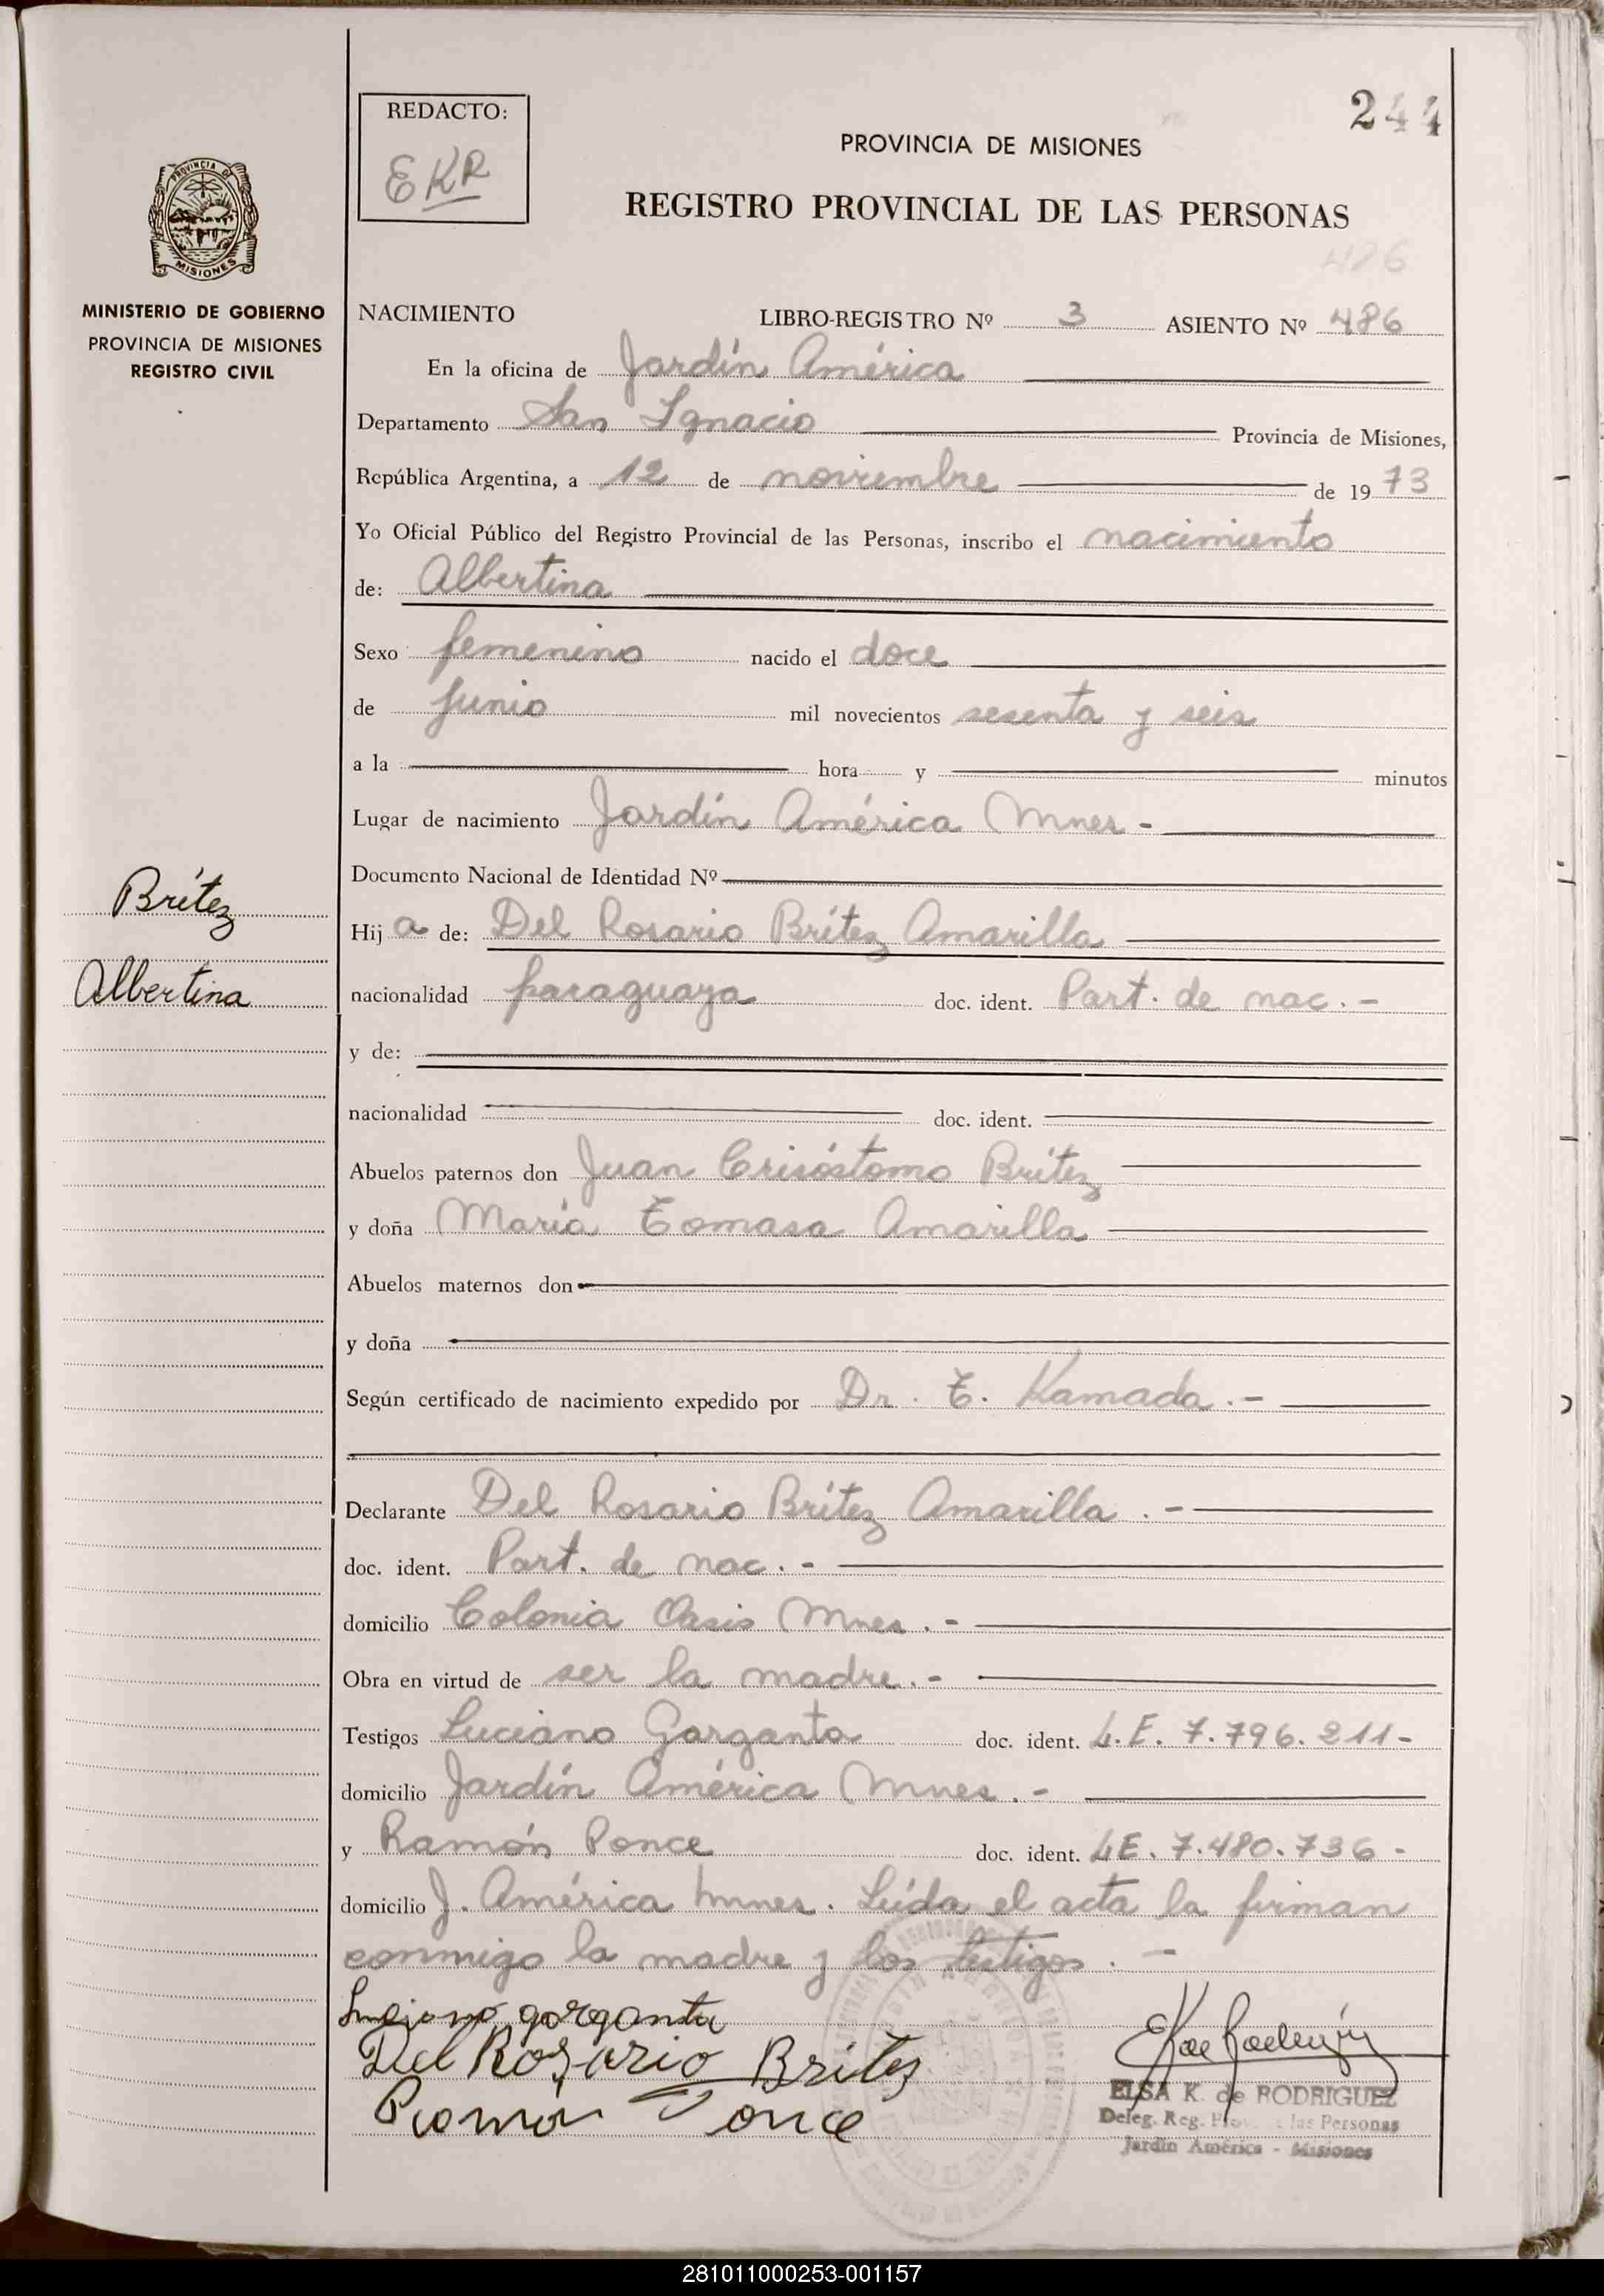 244
REDACTO:
EKR
PROVINCIA DE MISIONES
REGISTRO PROVINCIAL DE LAS PERSONAS
PROVINCIA DE
MISIONES
MINISTERIO DE GOBIERNO
PROVINCIA DE MISIONES
REGISTRO CIVIL
486
NACIMIENTO LIBRO-REGISTRO Nº 3 ASIENTO Nº 486
En la oficina de Jardín América
Departamento San Ignacio Provincia de Misiones,
República Argentina, a 12 de noviembre de 1973
Yo Oficial Público del Registro Provincial de las Personas, inscribo el nacimiento
de: Albertina
Sexo femenino nacido el doce
de junio mil novecientos sesenta y seis
a la hora y minutos
Lugar de nacimiento Jardín América Mnes -
Documento Nacional de Identidad Nº
Brítez
Hija de: Del Rosario Brítez Amarilla
Albertina
nacionalidad paraguaya doc. ident. Part. de nac. -
y de:
nacionalidad doc. ident.
Abuelos paternos don Juan Crisóstomo Brítez
y doña María Tomasa Amarilla
Abuelos maternos don
y doña
Según certificado de nacimiento expedido por Dr. T. Kamada. -
Declarante Del Rosario Brítez Amarilla. -
doc. ident. Part. de nac. -
domicilio Colonia Oasis Mnes. -
Obra en virtud de ser la madre. -
Testigos Luciano Garganta doc. ident. L.E. 7.796.211-
domicilio Jardín América Mnes. -
y Ramón Ponce doc. ident. LE. 7.480.736 -
domicilio J. América Mnes. Leída el acta la firman
conmigo la madre y los testigos. -
Luciano garganta
Del Rosario Britez
Ramón Ponce
ELSA K. de RODRIGUEZ
Deleg. Reg. Prov. las Personas
Jardín América - Misiones
281011000253-001157